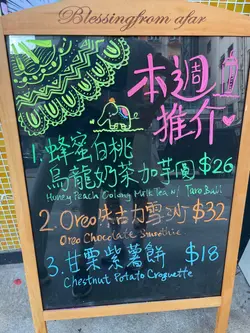 Blessing from afar
本週推介
1. 蜂蜜白桃
烏龍奶茶加芋圓 $26
Honey Peach Oolong Milk Tea w/ Taro Ball
2. Oreo朱古力雪沙 $32
Oreo Chocolate Smoothie
3. 甘栗紫薯餅 $18
Chestnut Potato Croquette